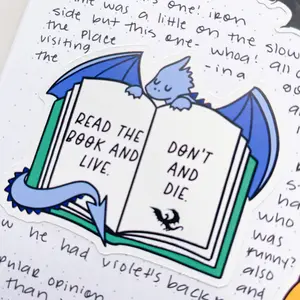 me was a little on the slow
side but this one - whoa! all
the place
visiting
- in a
the
READ THE
BOOK AND
LIVE.
DON'T
AND
DIE.
s
ha
who
was
funny?
also
and
he had violet's back
pular opinion
than